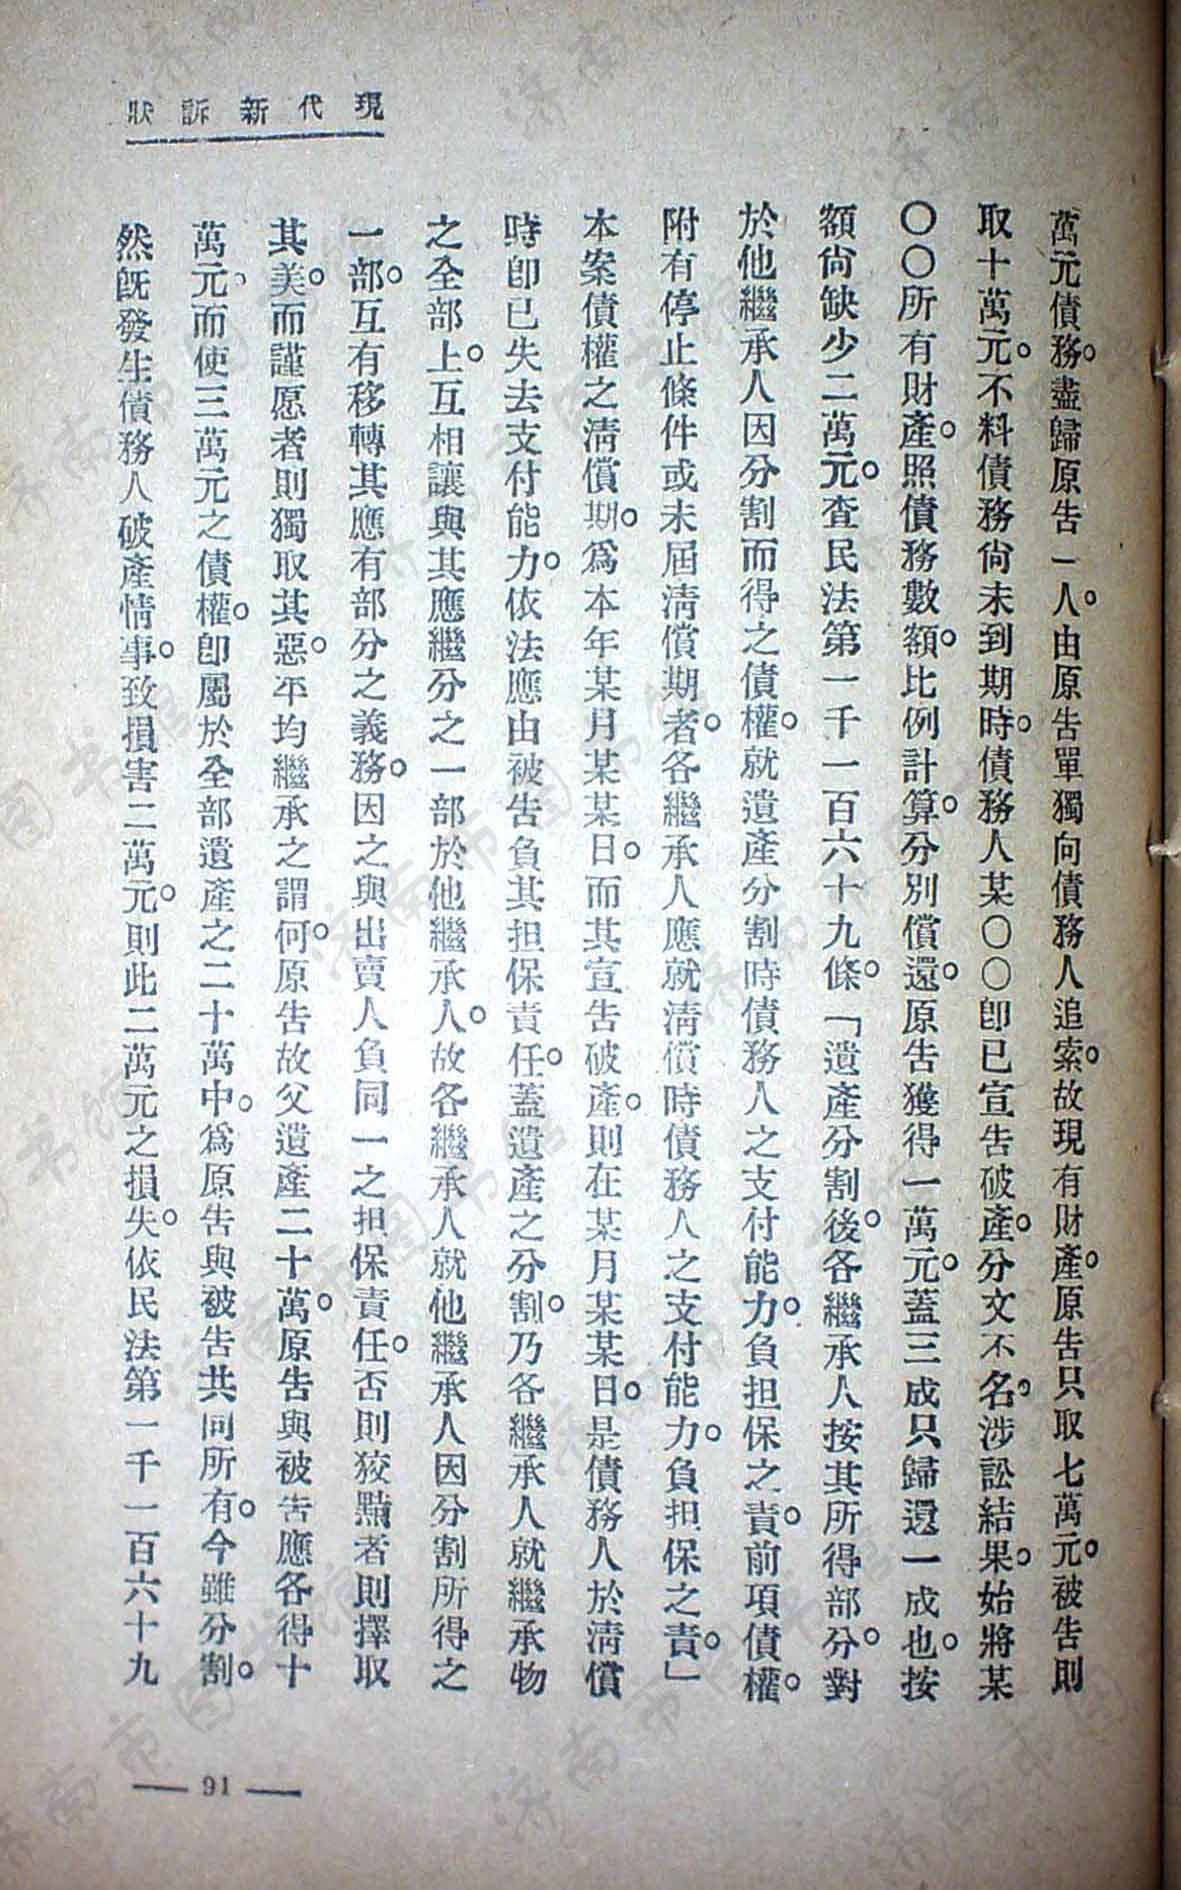 現代新訴狀
萬元債務。盡歸原告一人。由原告單獨向債務人追索。故現有財產。原告只取七萬元。被告則
取十萬元。不料債務尙未到期時。債務人某〇〇卽已宣告破產。分文不名。涉訟結果。始將某
〇〇所有財產。照債務數額。比例計算。分別償還。原告獲得一萬元。蓋三成只歸還一成也。按
額尙缺少二萬元。查民法第一千一百六十九條。「遺產分割後。各繼承人按其所得部分。對
於他繼承人因分割而得之債權。就遺產分割時債務人之支付能力。負担保之責。前項債權。
附有停止條件或未屆淸償期者。各繼承人應就淸償時債務人之支付能力。負担保之責。」
本案債權之淸償期。爲本年某月某某日。而其宣告破產。則在某月某某日。是債務人於淸償
時卽已失去支付能力。依法應由被告負其担保責任。蓋遺產之分割。乃各繼承人就繼承物
之全部上。互相讓與其應繼分之一部於他繼承人。故各繼承人就他繼承人因分割所得之
一部。互有移轉其應有部分之義務。因之與出賣人負同一之担保責任。否則狡黠者則擇取
其美。而謹愿者則獨取其惡。平均繼承之謂何。原告故父遺產二十萬。原告與被告應各得十
萬元。而使三萬元之債權。卽屬於全部遺產之二十萬中。爲原告與被告共同所有。今雖分割。
然旣發生債務人破產情事。致損害二萬元。則此二萬元之損失。依民法第一千一百六十九
— 91 —
济南市图书馆